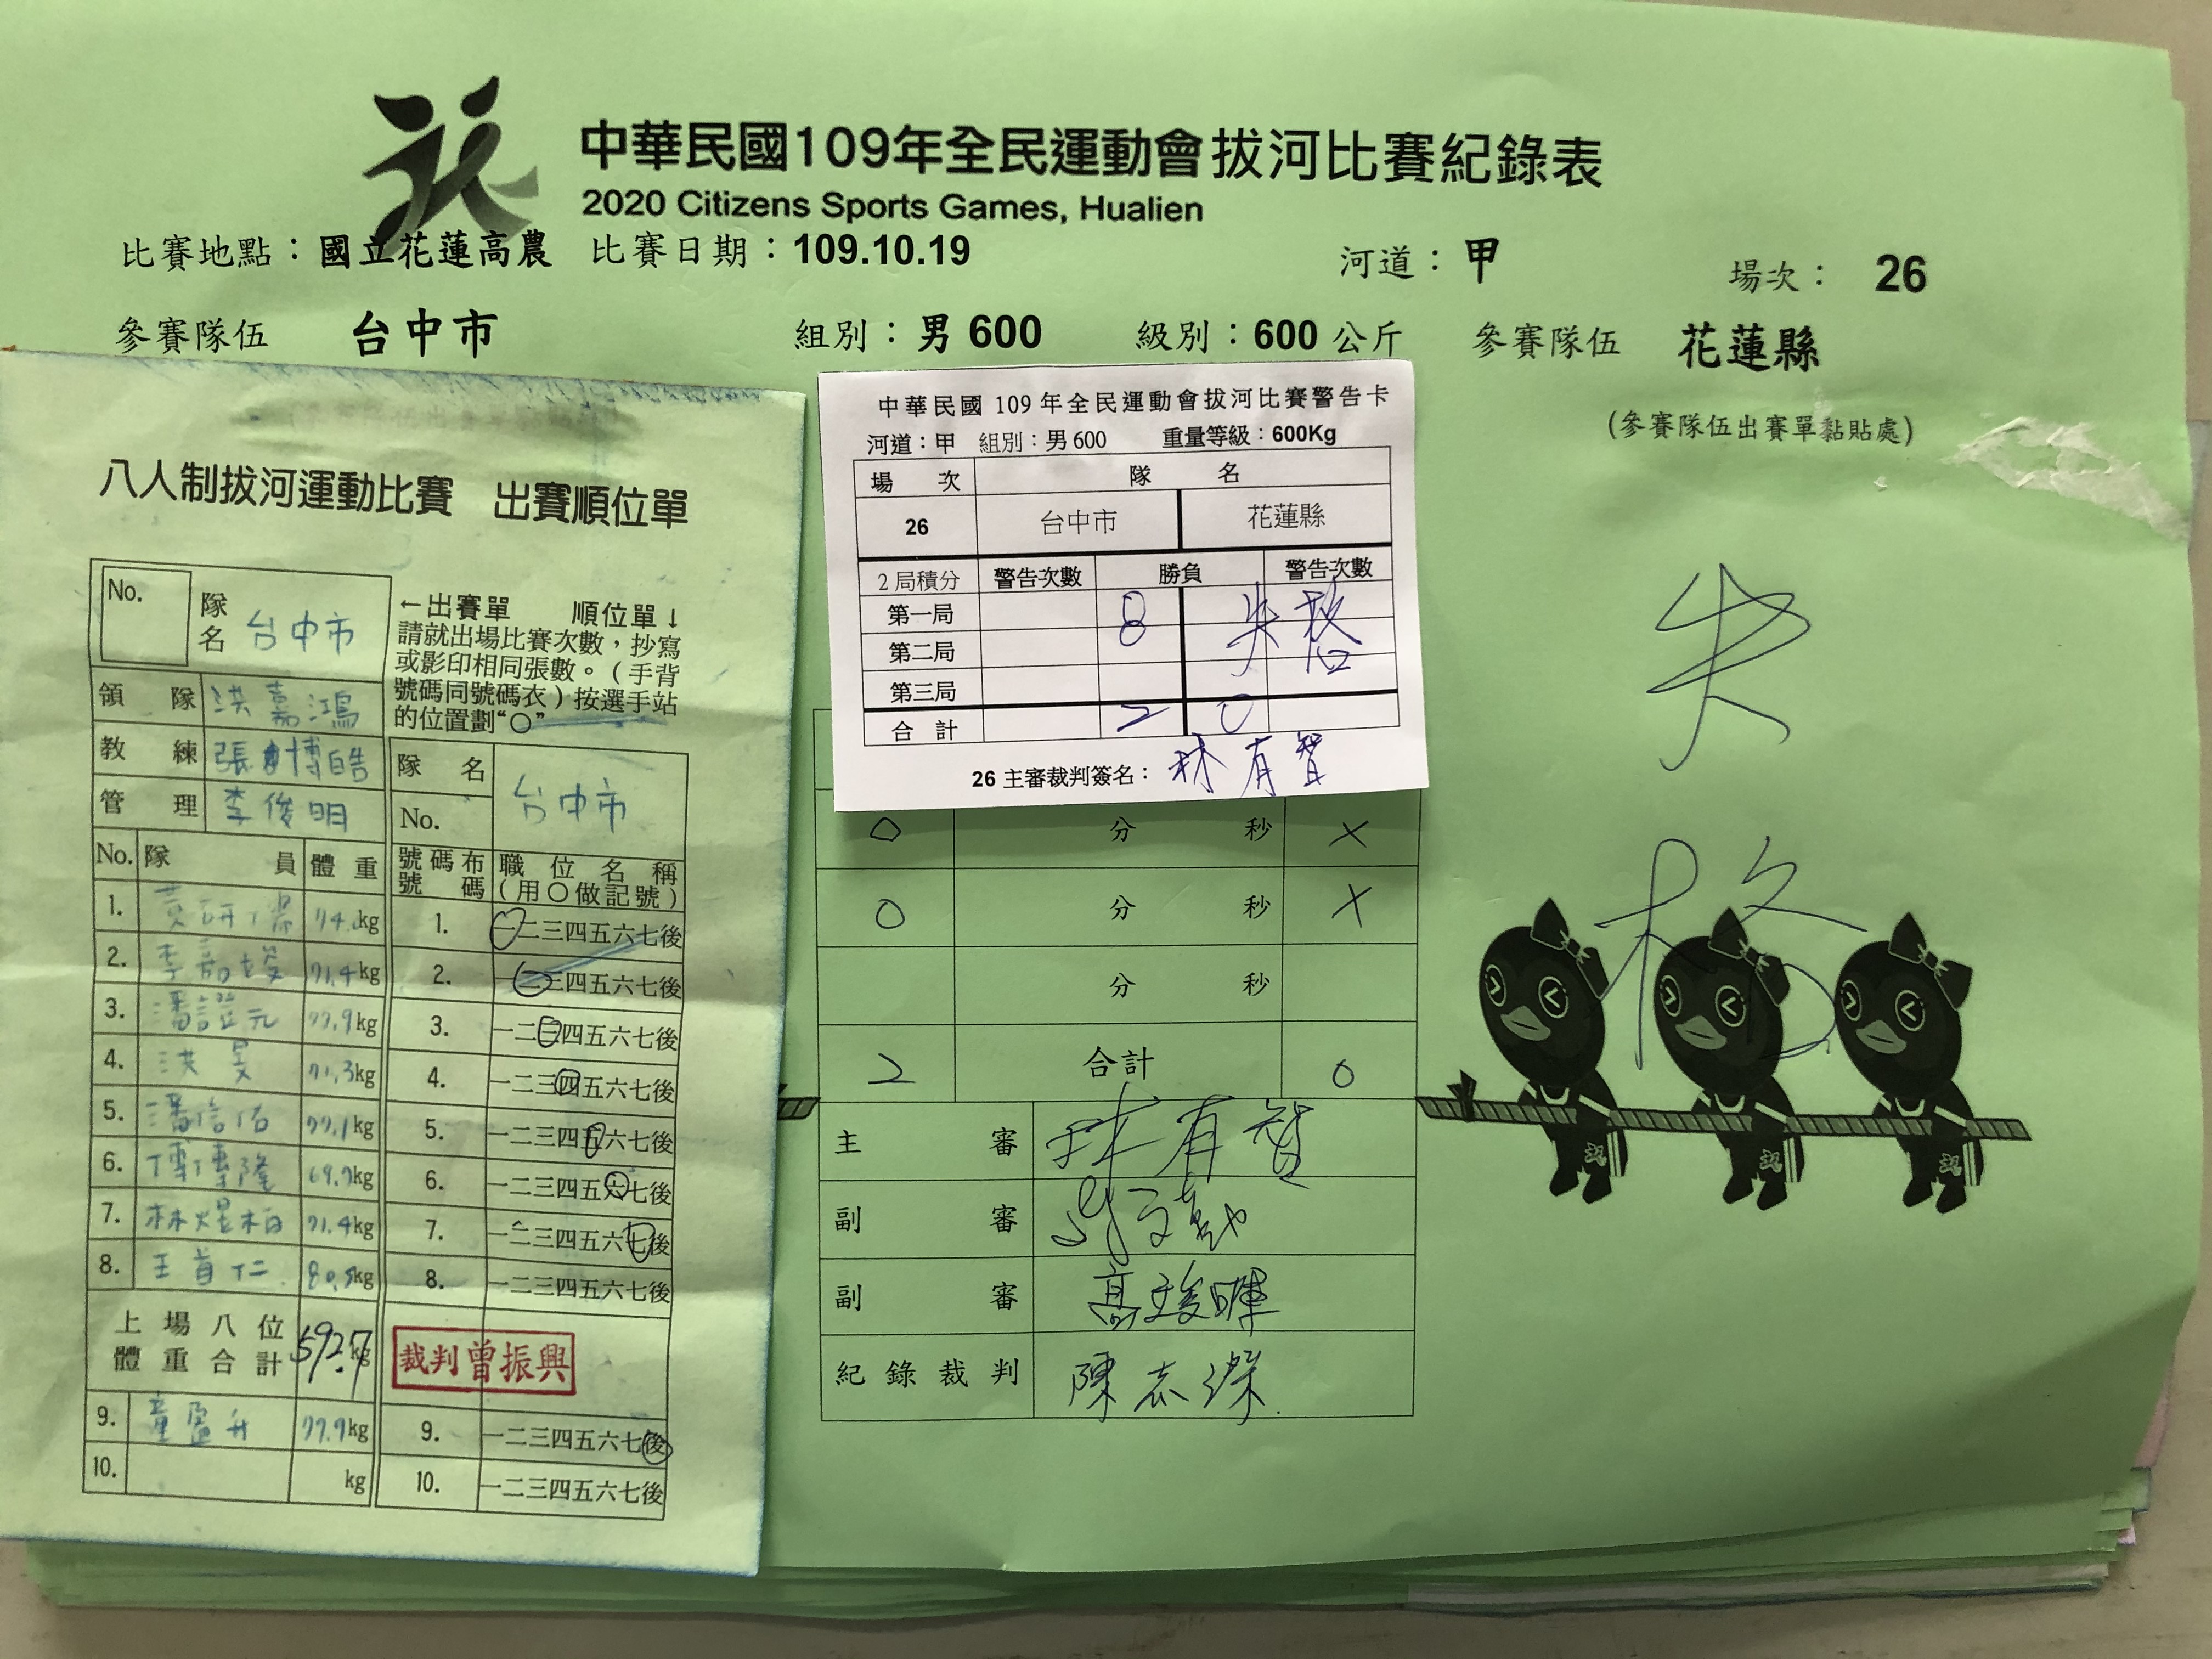 中華民國109年全民運動會拔河比賽紀錄表
2020 Citizens Sports Games, Hualien
比賽地點：國立花蓮高農 比賽日期：109.10.19 河道：甲 場次： 26
參賽隊伍 台中市 組別：男 600 級別：600 公斤 參賽隊伍 花蓮縣
(參賽隊伍出賽單黏貼處)
失
格
八人制拔河運動比賽 出賽順位單
No. 隊名 台中市
←出賽單 順位單↓
請就出場比賽次數，抄寫
或影印相同張數。(手背
號碼同號碼衣）按選手站
的位置劃“〇”
領隊 洪嘉鴻
教練 張博皓
管理 李俊明
隊名 台中市
No.
No. 隊員 體重
號碼布號碼 職位名稱(用〇做記號)
1. 74. kg 1. 一二三四五六七後
2. 71.4kg 2. 一二三四五六七後
3. 潘證元 77.9kg 3. 一二三四五六七後
4. 洪旻 71.3kg 4. 一二三四五六七後
5. 潘信佑 77.1kg 5. 一二三四五六七後
6. 69.7kg 6. 一二三四五六七後
7. 林煜栢 71.4kg 7. 一二三四五六七後
8. 王首仁 80.5kg 8. 一二三四五六七後
上場八位體重合計 592.7 kg
裁判曾振興
9. 童盈升 77.9kg 9. 一二三四五六七後
10. kg 10. 一二三四五六七後
中華民國 109 年全民運動會拔河比賽警告卡
河道：甲 組別：男 600 重量等級：600Kg
場次 隊名
26 台中市 花蓮縣
2局積分 警告次數 勝負 警告次數
第一局 〇 失格
第二局 〇
第三局
合計 2 0
26 主審裁判簽名： 林有智
〇 分 秒 ×
〇 分 秒 ×
分 秒
2 合計 0
主審 林有智
副審
副審 高竣暉
紀錄裁判